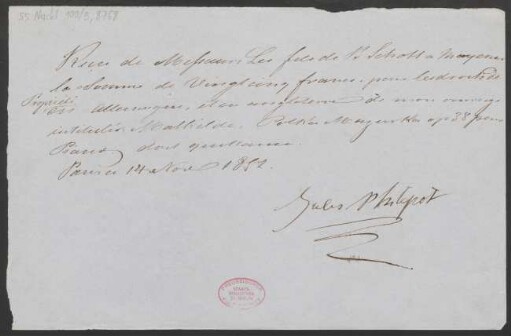 55 Nachl 100/B,
Reçu de Messieurs Les fils de B. Schott à Mayence
la Somme de Vingt cinq francs, pour les droits
en Allemagne, et en angleterre de mon ouvrage
intitulé Mathilde. Polka Mazurka op 38 pour
Piano dont quittance
Paris 14 Nov 1852.
Jules Philipot